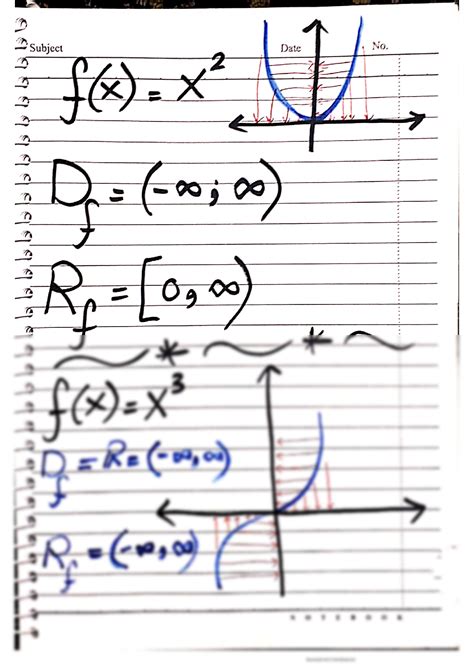 Subject Date No.
f(x) = x²
D_f = (-∞; ∞)
R_f = [0, ∞)
f(x) = x³
D_f = R = (-∞, ∞)
R_f = (-∞, ∞)